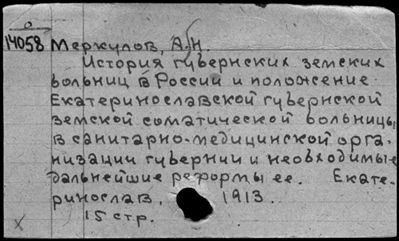 О
14058 Меркулов, А.Н.
История губернских земских
больниц в России и положение
Екатеринославской губернской
земской соматической больницы
в санитарно-медицинской орга-
низации губернии и необходимые
дальнейшие реформы ее. Екате-
ринослав, 1913.
15 стр.
X